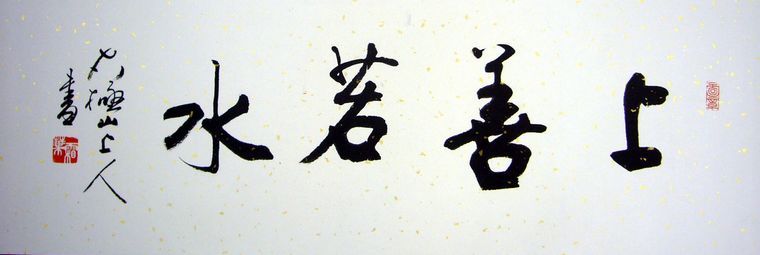 上善若水
太極山上人
書